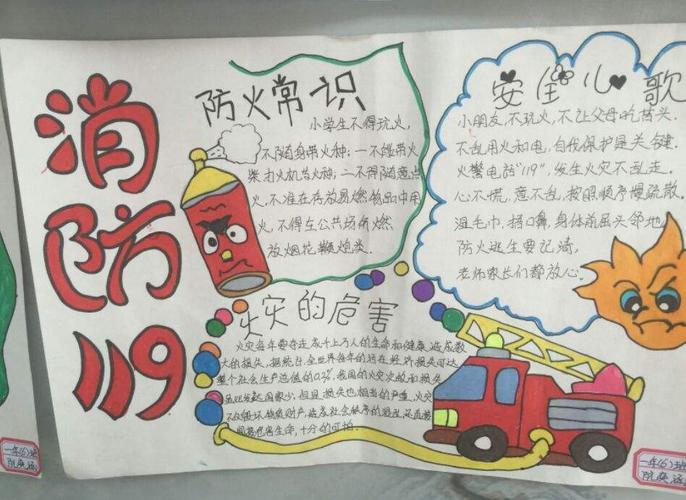 消防119
防火常识
小学生不得玩火，
不随身带火种；一不能带火
柴打火机等火种；二不得随意点
火，不准在存放易燃物品中用
火，不得在公共场所燃
放烟花鞭炮类。
安全儿歌
小朋友，不玩火，不让父母吃苦头.
不乱用火和电，自我保护是关键.
火警电话"119"，发生火灾不乱走.
心不慌，意不乱，按照顺序慢疏散.
湿毛巾，捂口鼻，身体前屈头邻地.
防火逃生要记清，
老师家长们都放心.
火灾的危害
火灾每年要夺走成千上万人的生命和健康，造成数
大的损失，据统计，全世界每年的火灾经济损失可达
整个社会生产总值的0.2%，我国的火灾次数和损失
虽比发达国家少，但损失也相当的严重，火灾
不仅毁坏物质财产，造成社会秩序的混乱，还直接
危害生命，十分的可怕.
一年(6)班
一年(6)班